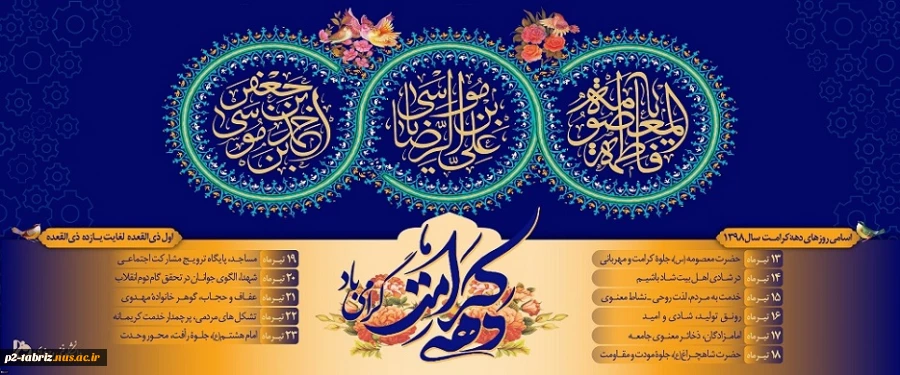 یا فاطمة المعصومة
علی بن موسی الرضا
احمد بن موسی بن جعفر
اسامی روزهای دهه کرامت سال ۱۳۹۸
۱۳ تیرماه حضرت معصومه(س)، جلوه کرامت و مهربانی
۱۴ تیرماه در شادی اهل بیت شاد باشیم
۱۵ تیرماه خدمت به مردم، لذت روحی، نشاط معنوی
۱۶ تیرماه رونق تولید، شادی و امید
۱۷ تیرماه امامزادگان، ذخائر معنوی جامعه
۱۸ تیرماه حضرت شاهچراغ(ع)، جلوه مودت و مقاومت
دهه کرامت گرامی باد
اول ذی القعده لغایت یازده ذی القعده
۱۹ تیرماه مساجد، پایگاه ترویج مشارکت اجتماعی
۲۰ تیرماه شهدا، الگوی جوانان در تحقق گام دوم انقلاب
۲۱ تیرماه عفاف و حجاب، گوهر خانوادهٔ مهدوی
۲۲ تیرماه تشکل های مردمی، پرچمدار خدمت کریمانه
۲۳ تیرماه امام هشتم(ع)، جلوهٔ رأفت، محور وحدت
p2-tabriz.nus.ac.ir